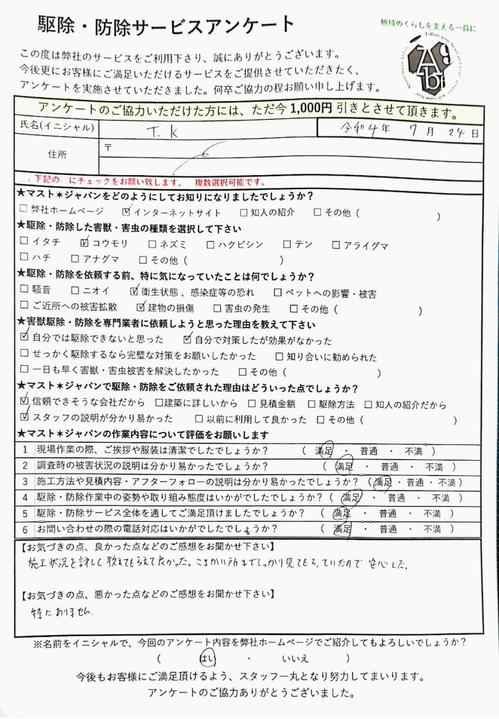 駆除・防除サービスアンケート
地域のくらしを支える一員に
この度は弊社のサービスをご利用下さり、誠にありがとうございます。
今後更にお客様にご満足いただけるサービスをご提供させていただきたく、
アンケートを実施させていただきました。何卒ご協力の程お願い申し上げます。
アンケートのご協力いただけた方には、ただ今1,000円引きとさせて頂きます。
氏名(イニシャル) T.K 令和4年 7月 24日
住所 〒
下記の にチェックをお願い致します。 複数選択可能です。
★マスト✶ジャパンをどのようにしてお知りになりましたでしょうか?
□弊社ホームページ ☑インターネットサイト □知人の紹介 □その他( )
★駆除・防除した害獣・害虫の種類を選択して下さい
□イタチ ☑コウモリ □ネズミ □ハクビシン □テン □アライグマ
□ハチ □アナグマ □その他( )
★駆除・防除を依頼する前、特に気になっていたことは何でしょうか?
□騒音 □ニオイ ☑衛生状態、感染症等の恐れ □ペットへの影響・被害
□ご近所への被害拡散 ☑建物の損傷 □害虫の発生 □その他( )
★害獣駆除・防除を専門業者に依頼しようと思った理由を教えて下さい
☑自分では駆除できないと思った ☑自分で対策したが効果がなかった
□せっかく駆除するなら完璧な対策をお願いしたかった □知り合いに勧められた
□一日も早く害獣・害虫被害を解決したかった □その他( )
★マスト✶ジャパンで駆除・防除をご依頼された理由はどういった点でしょうか?
☑信頼できそうな会社だから □建築に詳しいから □見積金額 □駆除方法 □知人の紹介だから
☑スタッフの説明が分かり易かった □以前に利用して良かった □その他( )
★マスト✶ジャパンの作業内容について評価をお願いします
1 現場作業の際、ご挨拶や服装は清潔でしたでしょうか? ( 満足 ・ 普通 ・ 不満 )
2 調査時の被害状況の説明は分かり易かったでしょうか? ( 満足 ・ 普通 ・ 不満 )
3 施工方法や見積内容・アフターフォローの説明は分かり易かったでしょうか? ( 満足 ・ 普通 ・ 不満 )
4 駆除・防除作業中の姿勢や取り組み態度はいかがでしたでしょうか? ( 満足 ・ 普通 ・ 不満 )
5 駆除・防除サービス全体を通してご満足頂けましたでしょうか? ( 満足 ・ 普通 ・ 不満 )
6 お問い合わせの際の電話対応はいかがでしたでしょうか? ( 満足 ・ 普通 ・ 不満 )
【お気づきの点、良かった点などのご感想をお聞かせ下さい】
施工状況を詳しく教えてもらえて良かった。こまかい所までしっかり見てもらっていたので安心した。
【お気づきの点、悪かった点などのご感想をお聞かせ下さい】
特にありません
※名前をイニシャルで、今回のアンケート内容を弊社ホームページでご紹介してもよろしいでしょうか?
( はい ・ いいえ )
今後もお客様にご満足頂けるよう、スタッフ一丸となり努力してまいります。
アンケートのご協力ありがとうございました。